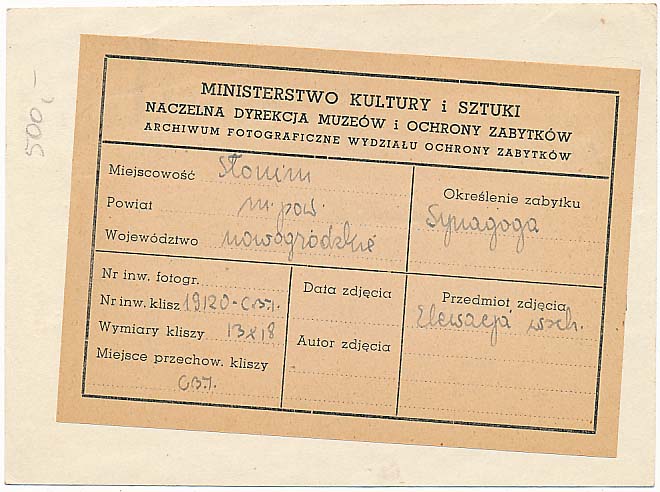 500,-
MINISTERSTWO KULTURY i SZTUKI
NACZELNA DYREKCJA MUZEÓW i OCHRONY ZABYTKÓW
ARCHIWUM FOTOGRAFICZNE WYDZIAŁU OCHRONY ZABYTKÓW
Miejscowość Słonim
Powiat m. pow.
Województwo nowogródzkie
Określenie zabytku
Synagoga
Nr inw. fotogr.
Nr inw. klisz 19120-C.B.I.
Wymiary kliszy 13x18
Miejsce przechow. kliszy
C.B.I.
Data zdjęcia
Autor zdjęcia
Przedmiot zdjęcia
Elewacja wsch.